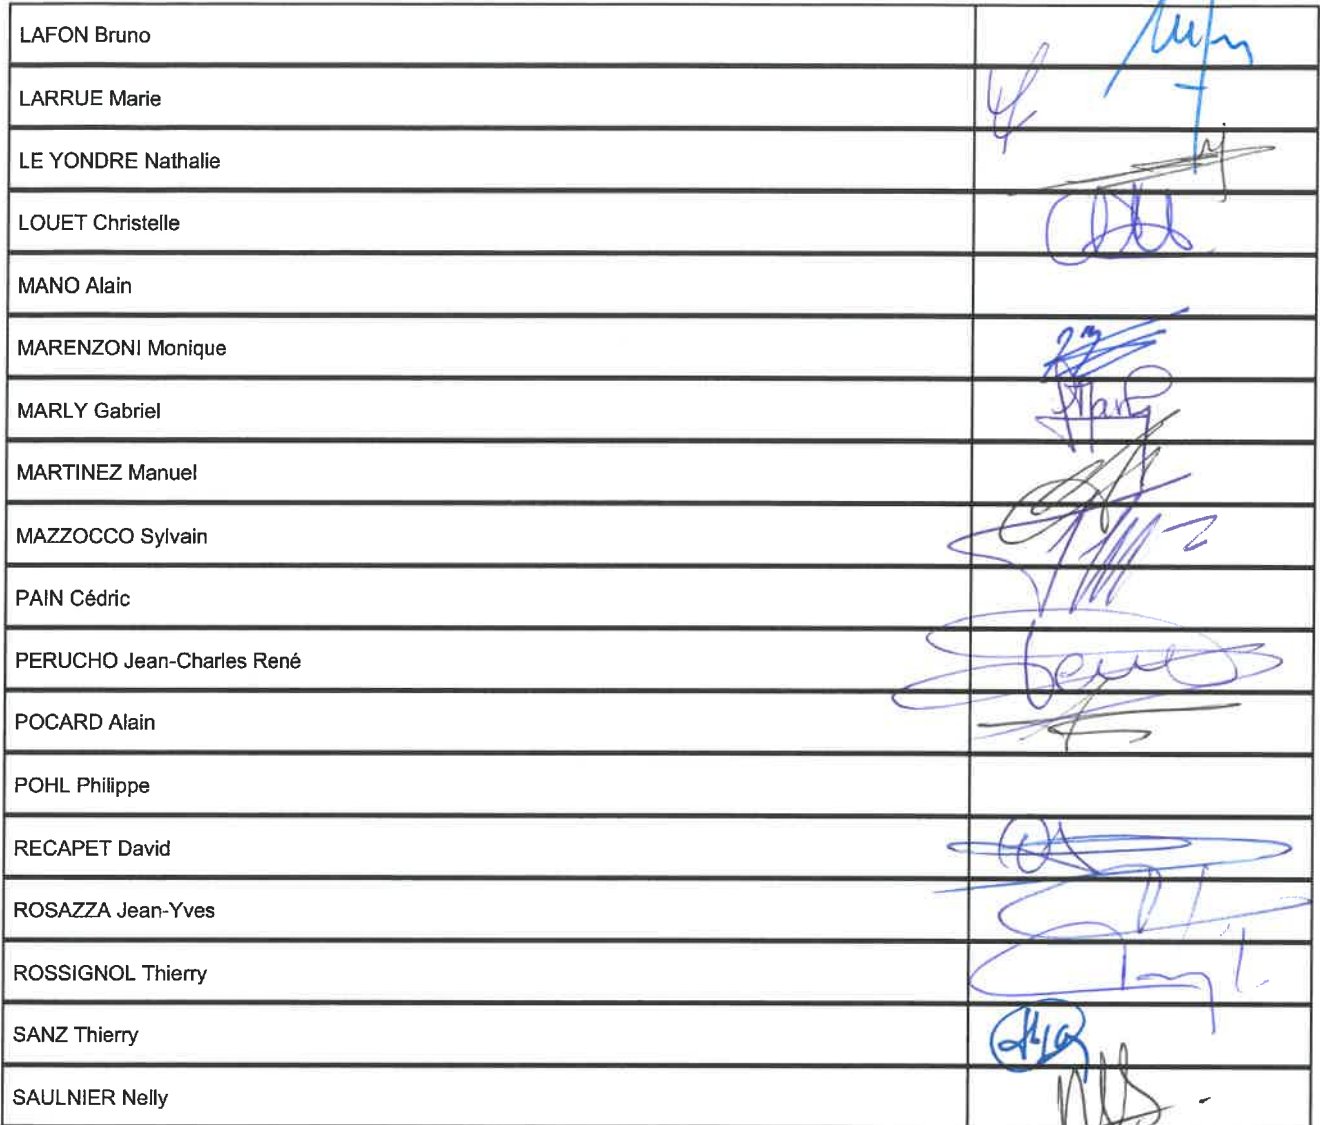 LAFON Bruno
LARRUE Marie
LE YONDRE Nathalie
LOUET Christelle
MANO Alain
MARENZONI Monique
MARLY Gabriel
MARTINEZ Manuel
MAZZOCCO Sylvain
PAIN Cédric
PERUCHO Jean-Charles René
POCARD Alain
POHL Philippe
RECAPET David
ROSAZZA Jean-Yves
ROSSIGNOL Thierry
SANZ Thierry
SAULNIER Nelly